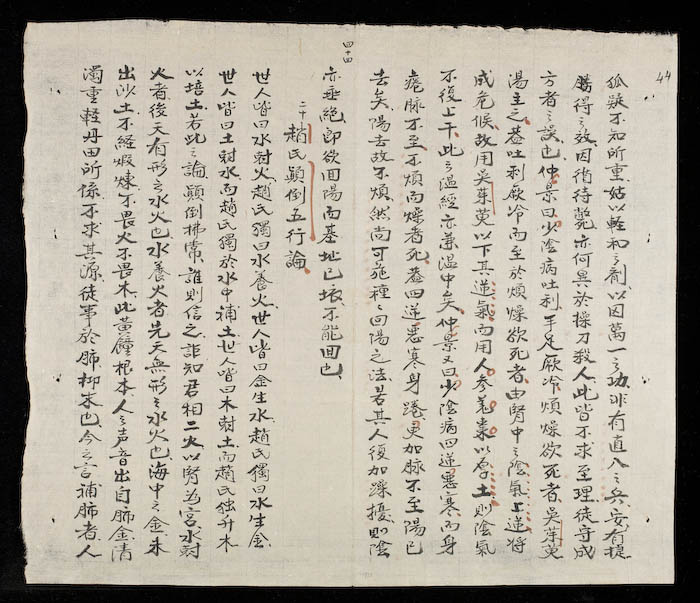 44
孤疑不知所重姑以輕和之劑以因萬一之功非有直入之兵安有提
勝得之效因循待斃亦何異於操刀殺人此皆不求至理徒守成
方者之誤也仲景曰少陰病吐利手足厥冷煩燥欲死者吳茱萸
湯主之蓋吐利厥冷而至於煩燥欲死者由腎中之陰氣上逆將
成危候故用吳茱萸以下其逆氣而用人參姜棗以厚土則陰氣
不復上干此之溫經亦兼溫中矣仲景又曰少陰病四逆惡寒而身
踡脉不至不煩而燥者死蓋四逆惡寒身踡更加脉不至陽已
去矣陽去故不煩然尚可施種之回陽之法若其人復加躁擾則陰
四十四
亦垂絕即欲回陽而基址已壞不能回也
二十趙氏顛倒五行論
世人皆曰水尅火趙氏獨曰水養火世人皆曰金生水趙氏獨曰水生金
世人皆曰土尅水而趙氏獨於水中補土世人皆曰木尅土而趙氏独升木
以培土若此之論顛倒拂常誰則信之詎知君相二火以腎為宮水尅
火者後天有形之水火也水養火者先天無形之水火也海中之金未
出沙土不經煅煉不畏火不畏木此黃鐘根本人之声音出自肺金清
濁重輕丹田所係不求其源徒事於肺抑末也今之言補肺者人